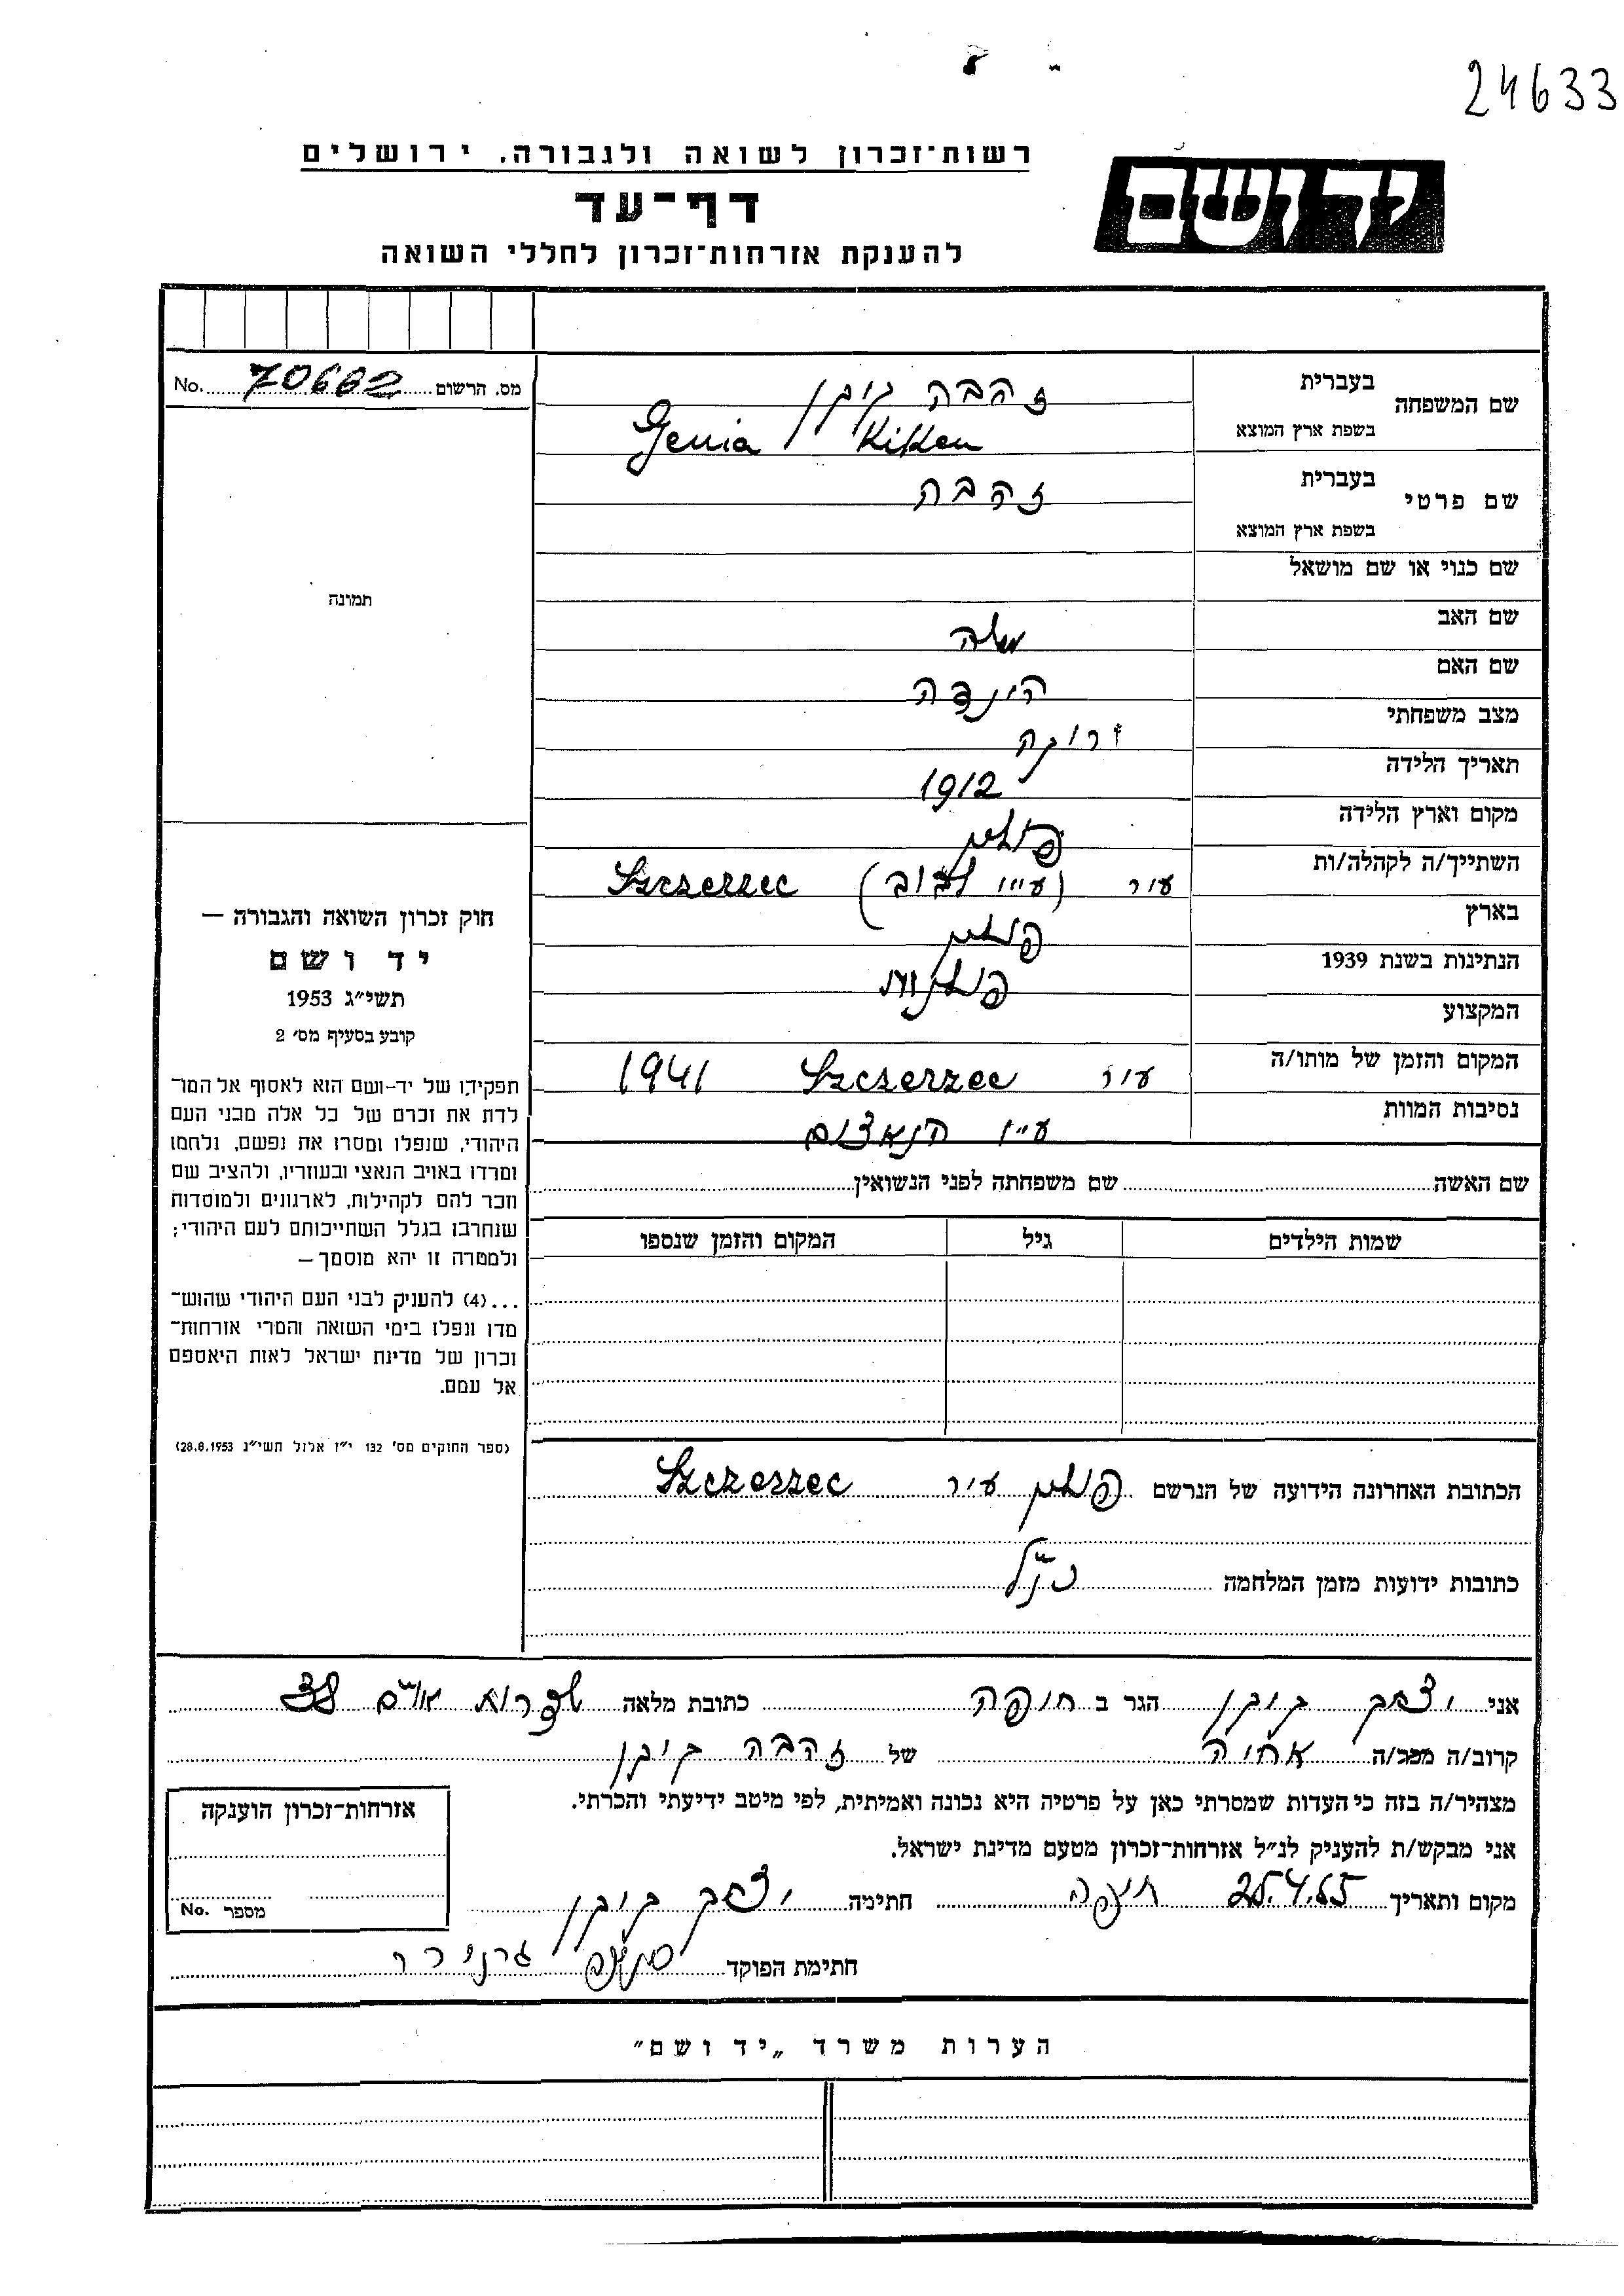 24633
רשות־זכרון לשואה ולגבורה, ירושלים
ידושם
דף־עד
להענקת אזרחות־זכרון לחללי השואה
מס. הרשום 70662 No.
שם המשפחה בעברית זהבה קיקן
בשפת ארץ המוצא Genia Kiken
שם פרטי בעברית זהבה
בשפת ארץ המוצא
שם כנוי או שם מושאל
תמונה
שם האב משה
שם האם הינדה
מצב משפחתי רוקה
תאריך הלידה 1912
מקום וארץ הלידה פולין
השתייך/ה לקהלה/ות עיר (ע"י לבוב) Szczerzec
בארץ פולין
הנתינות בשנת 1939 פולנית
המקצוע
המקום והזמן של מותו/ה עיר Szczerzec 1941
נסיבות המוות ע"י הנאצים
שם האשה שם משפחתה לפני הנשואין
שמות הילדים גיל המקום והזמן שנספו
חוק זכרון השואה והגבורה —
יד ושם
תשי"ג 1953
קובע בסעיף מס׳ 2
תפקידו של יד-ושם הוא לאסוף אל המו־
לדת את זכרם של כל אלה מבני העם
היהודי, שנפלו ומסרו את נפשם, נלחמו
ומרדו באויב הנאצי ובעוזריו, ולהציב שם
וזכר להם לקהילות, לארגונים ולמוסדות
שנחרבו בגלל השתייכותם לעם היהודי;
ולמטרה זו יהא מוסמך —
...(4) להעניק לבני העם היהודי שהוש־
מדו ונפלו בימי השואה והמרי אזרחות־
זכרון של מדינת ישראל לאות היאספם
אל עמם.
(ספר החוקים מס׳ 132 י"ז אלול תשי"ג 28.8.1953)
הכתובת האחרונה הידועה של הנרשם פולין עיר Szczerzec
כתובות ידועות מזמן המלחמה כנ"ל
אני יצחק קיקן הגר ב חיפה כתובת מלאה שדרות או"ם 38
קרוב/ה מכר/ה אחיה של זהבה קיקן
מצהיר/ה בזה כי העדות שמסרתי כאן על פרטיה היא נכונה ואמיתית, לפי מיטב ידיעתי והכרתי.
אני מבקש/ת להעניק לנ"ל אזרחות־זכרון מטעם מדינת ישראל.
מקום ותאריך 25.4.55 חיפה חתימה יצחק קיקן
חתימת הפוקד
אזרחות־זכרון הוענקה
מספר No.
הערות משרד „יד ושם"